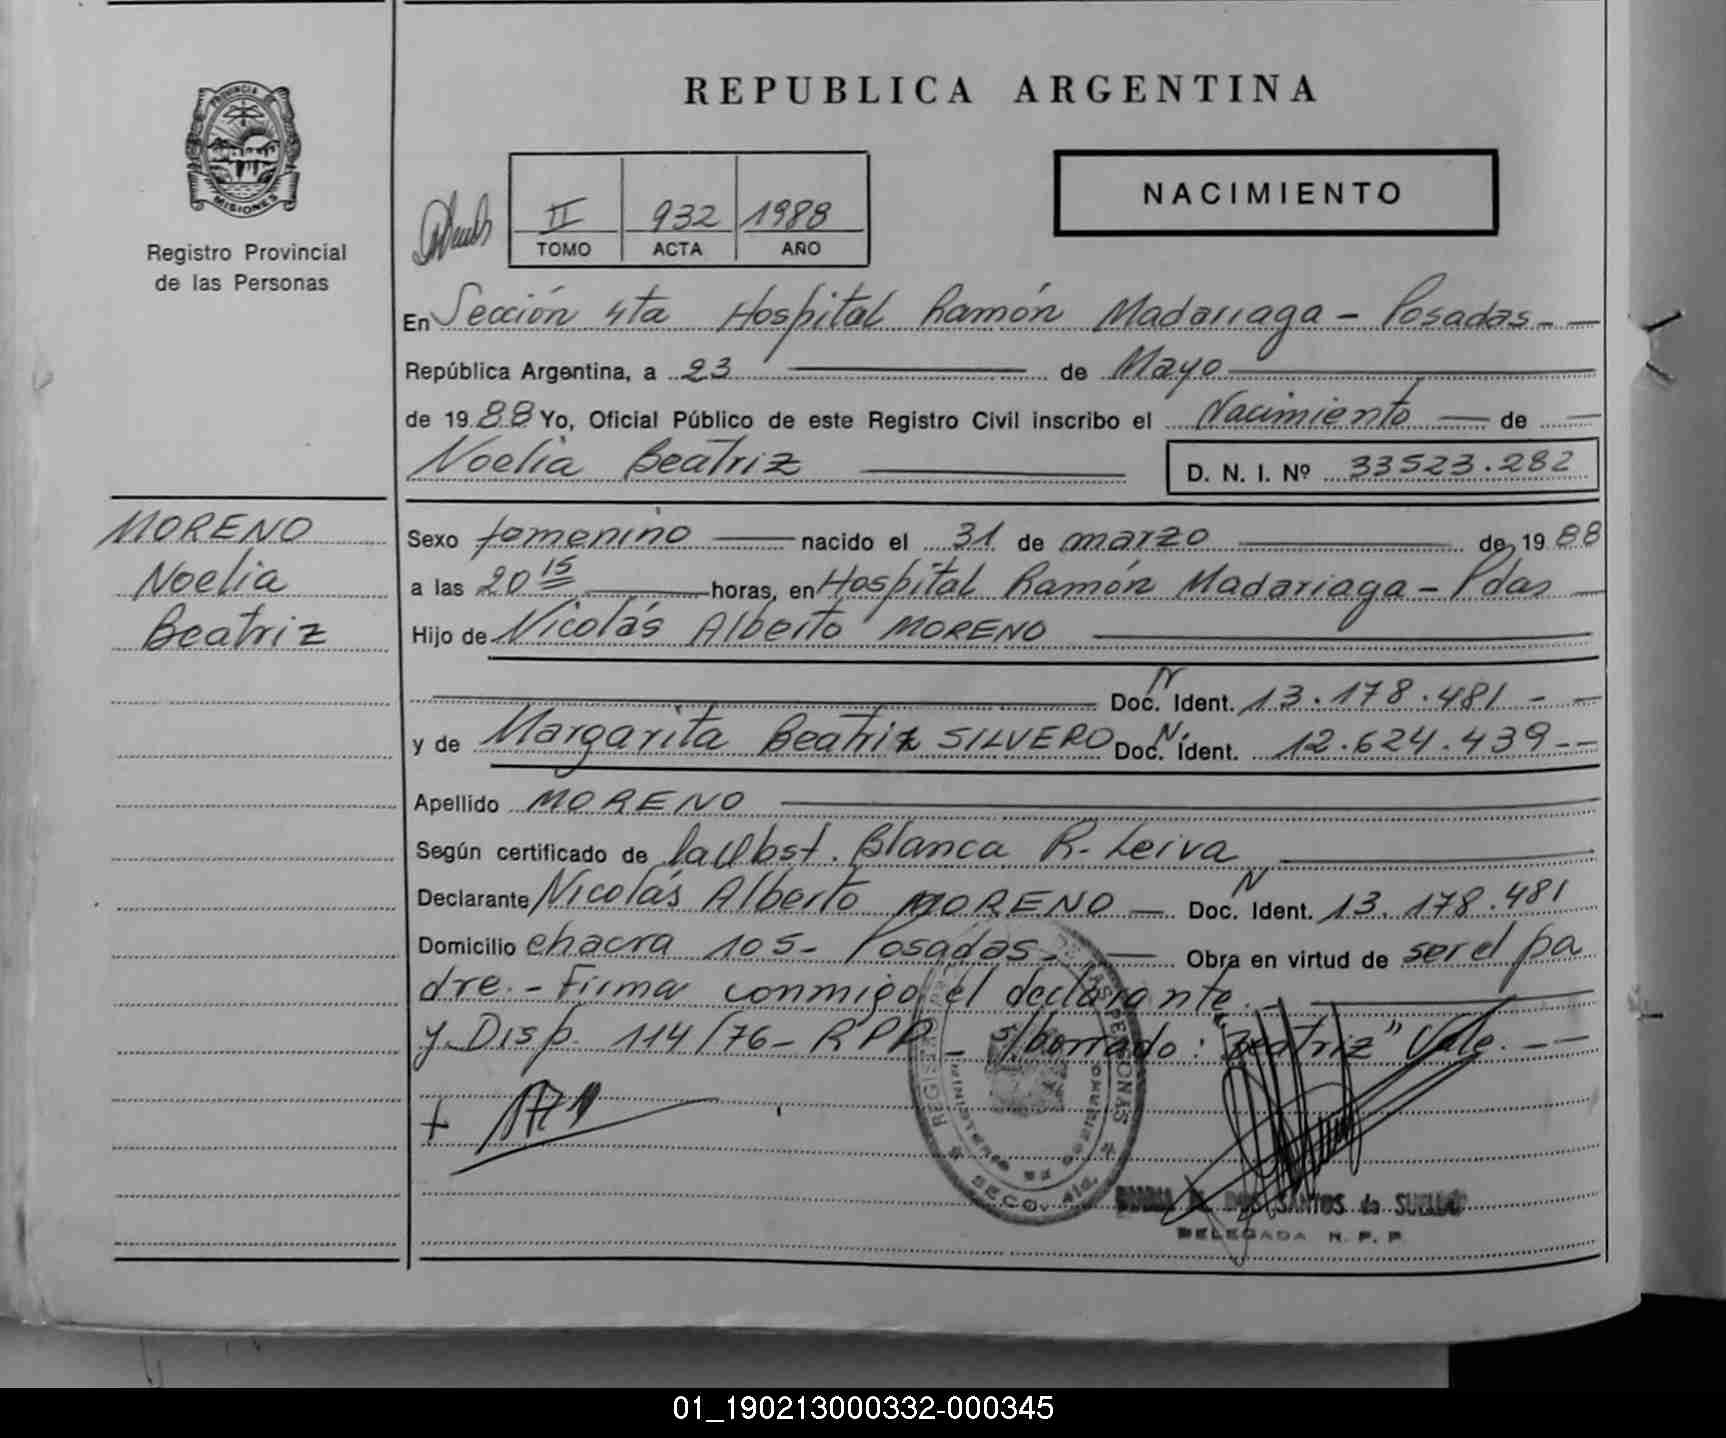 REPUBLICA ARGENTINA
PROVINCIA DE
MISIONES
Registro Provincial
de las Personas
NACIMIENTO
II 932 1988
TOMO ACTA AÑO
En Sección 4ta Hospital Ramón Madariaga - Posadas - -
República Argentina, a 23 de Mayo
de 1988 Yo, Oficial Público de este Registro Civil inscribo el Nacimiento de
Noelia Beatriz D. N. I. Nº 33523.282
MORENO
Noelia
Beatriz
Sexo femenino nacido el 31 de marzo de 1988
a las 20 15 horas, en Hospital Ramón Madariaga - Pdas
Hijo de Nicolás Alberto MORENO
Doc. N Ident. 13.178.481 - -
y de Margarita Beatriz SILVERO Doc. N. Ident. 12.624.439 - -
Apellido MORENO
Según certificado de la Obst. Blanca R. Leiva
Declarante Nicolás Alberto MORENO - Doc. N Ident. 13.178.481
Domicilio chacra 105 - Posadas. Obra en virtud de ser el pa
dre. - Firma conmigo el declarante.
y Disp. 114/76 - RPP - S/borrado: "Beatriz" Vale. - -
REGIS PERSONAS
SECC. 4ta.
DOS SANTOS de
DELEGADA R. P. P.
01_190213000332-000345